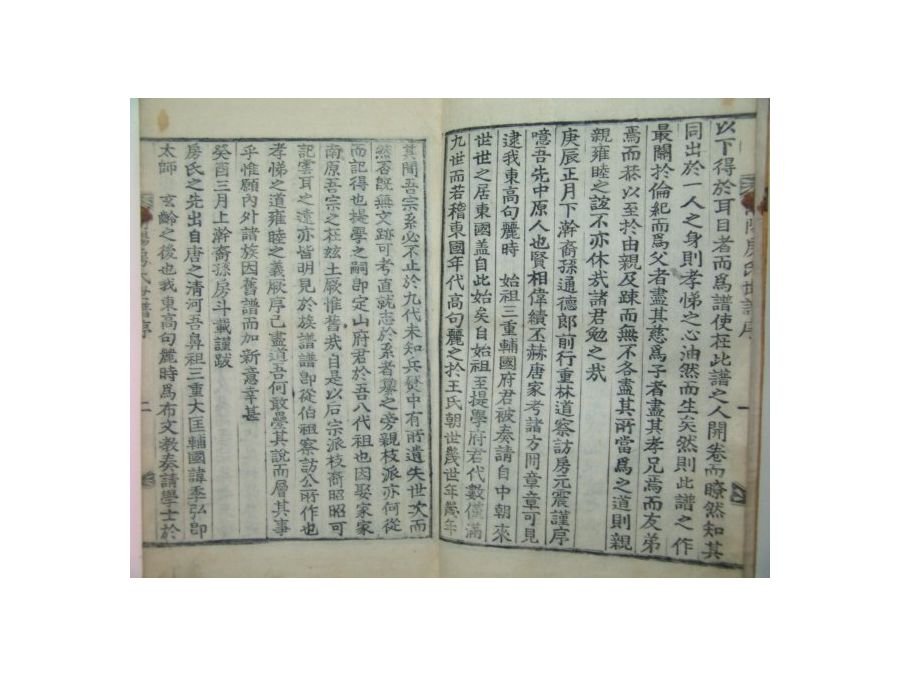 陽房氏世譜序
一
以下得於耳目者而爲譜使在此譜之人開卷而瞭然知其
同出於一人之身則孝悌之心油然而生矣然則此譜之作
最關於倫紀而爲父者盡其慈爲子者盡其孝兄焉而友弟
焉而恭以至於由親及疎而無不各盡其所當爲之道則親
親雍睦之諺不亦休哉諸君勉之哉
庚辰正月下澣裔孫通德郎前行重林道察訪房元震謹序
噫吾先中原人也賢相偉績丕赫唐家考諸方冊章章可見
逮我東高句麗時 始祖三重輔國府君被奏請自中朝來
世世之居東國盖自此始矣自始祖至提學府君代數僅滿
九世而若稽東國年代高句麗之於王氏朝世幾世年幾年
其間吾宗系必不止於九代未知兵燹中有所遺失世次而
然否旣無文跡可考直就志於系者
之旁親枝派亦何從
而記得也提學之嗣卽定山府君於吾八代祖也因娶家家
南原吾宗之在玆土厥惟舊哉自是以后宗派枝裔昭昭可
記雲耳之遠亦皆明見於族譜譜卽從伯祖察訪公所作也
孝悌之道雍睦之義厥序已盡道吾何敢疊其說而層其事
乎惟願內外諸族因舊譜而加新意幸甚
癸酉三月上澣裔孫房斗
謹跋
房氏之先出自唐之清河吾鼻祖三重大匡輔國諱季弘卽
太師 玄齡之後也我東高句麗時爲布文敎奏請學士於
陽房氏世譜序
二